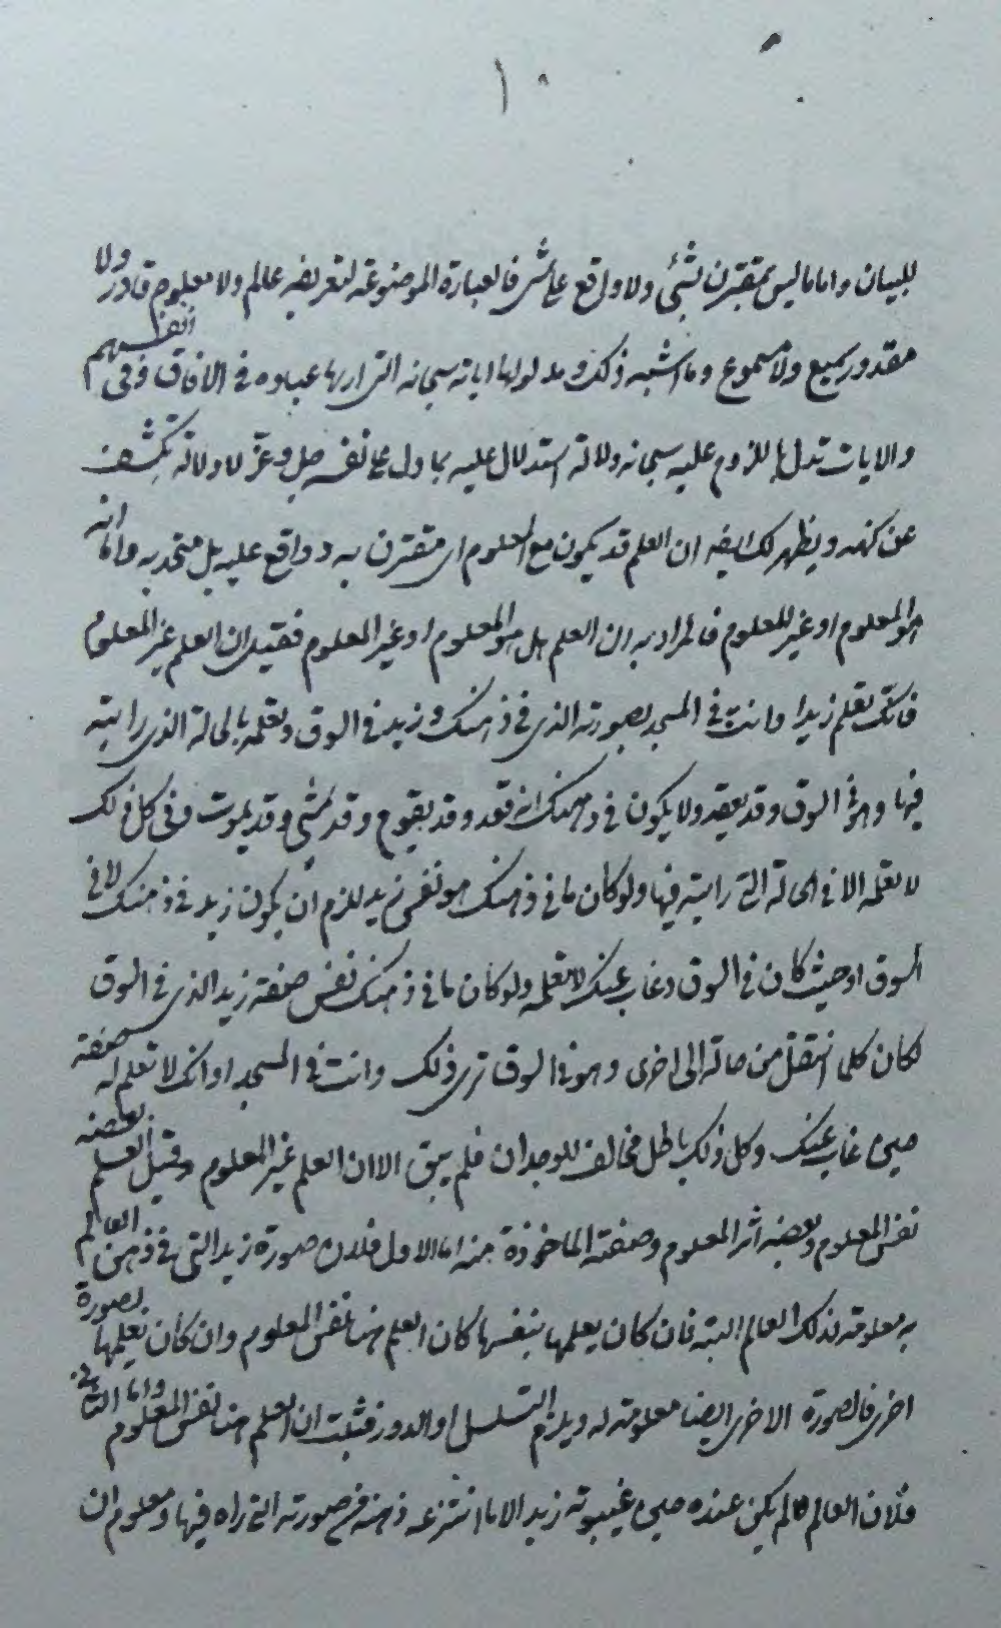 ١٠
للبيان واما ما ليس بمقترن بشئ ولا واقع على شئ فالعبارة الموضوعة لتعريفه عالم ولا معلوم قادر ولا
مقدور سميع ولا مسموع وما اشبه ذلك ومدلولها اياته سبحانه التي اراها عباده في الافاق وفي انفسهم
والايات تدل باللزوم عليه سبحانه دلالة استدلال عليه بما دل على نفسه جل وعز لا دلالة تكشف
عن كنهه ويظهر لك ايضه ان العلم قد يكون مع المعلوم اي مقترن به وواقع عليه بل متحد به واما انه
هو المعلوم او غير المعلوم فالمراد به ان العلم هل هو المعلوم او غير المعلوم فقيل ان العلم غير المعلوم
فانك تعلم زيدا وانت في المسجد بصورته الذي في ذهنك وزيد في السوق وتعلمه بالحالة الذي رايته
فيها وهو في السوق وقد يقعد ولا يكون في ذهنك انه قعد وقد يقوم وقد يمشي وقد يموت وفي كل ذلك
لا تعلمه الا في الحالة التي رايته فيها ولو كان ما في ذهنك هو نفس زيد للزم ان يكون زيد في ذهنك لا في
السوق او حيث كان في السوق وغاب عنك لا تعلمه ولو كان ما في ذهنك نفس صفة زيد الذي في السوق
لكان كلما انتقل من حالة الى اخرى وهو في السوق ترى ذلك وانت في المسجد او انك لا تعلم له صفة
حين غاب عنك وكل ذلك باطل مخالف للوجدان فلم يبق الا ان العلم غير المعلوم وقيل العلم بعضه
نفس المعلوم وبعضه اثر المعلوم وصفته الماخوذة منه اما الاول فلان صورة زيد التي في ذهن العالم
به معلومة لذلك العالم البته فان كان يعلمها بنفسها كان العلم هنا نفس المعلوم وان كان يعلمها بصورة
اخرى فالصورة الاخرى ايضا معلومة له ويلزم التسلسل او الدور فثبت ان العلم هنا نفس المعلوم واما الثاني
فلان العالم لم يكن عنده حين غيبوبة زيد الا ما انتزعه ذهنه من صورته التي راه فيها ومعلوم ان